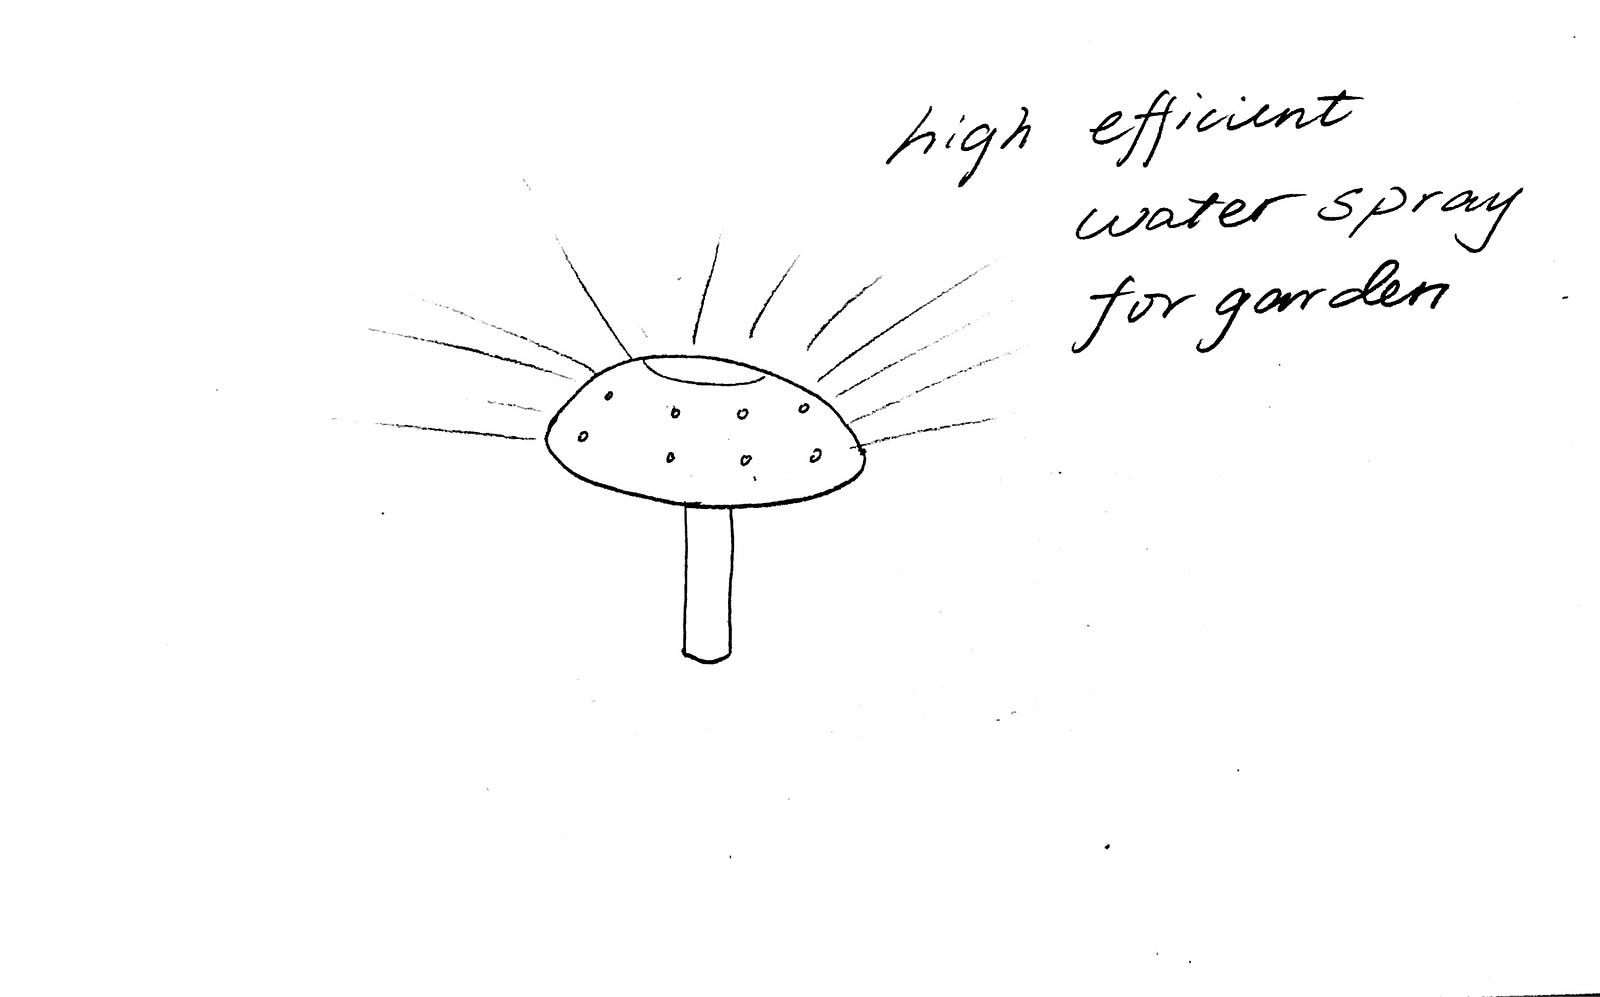 high efficient
water spray
for garden